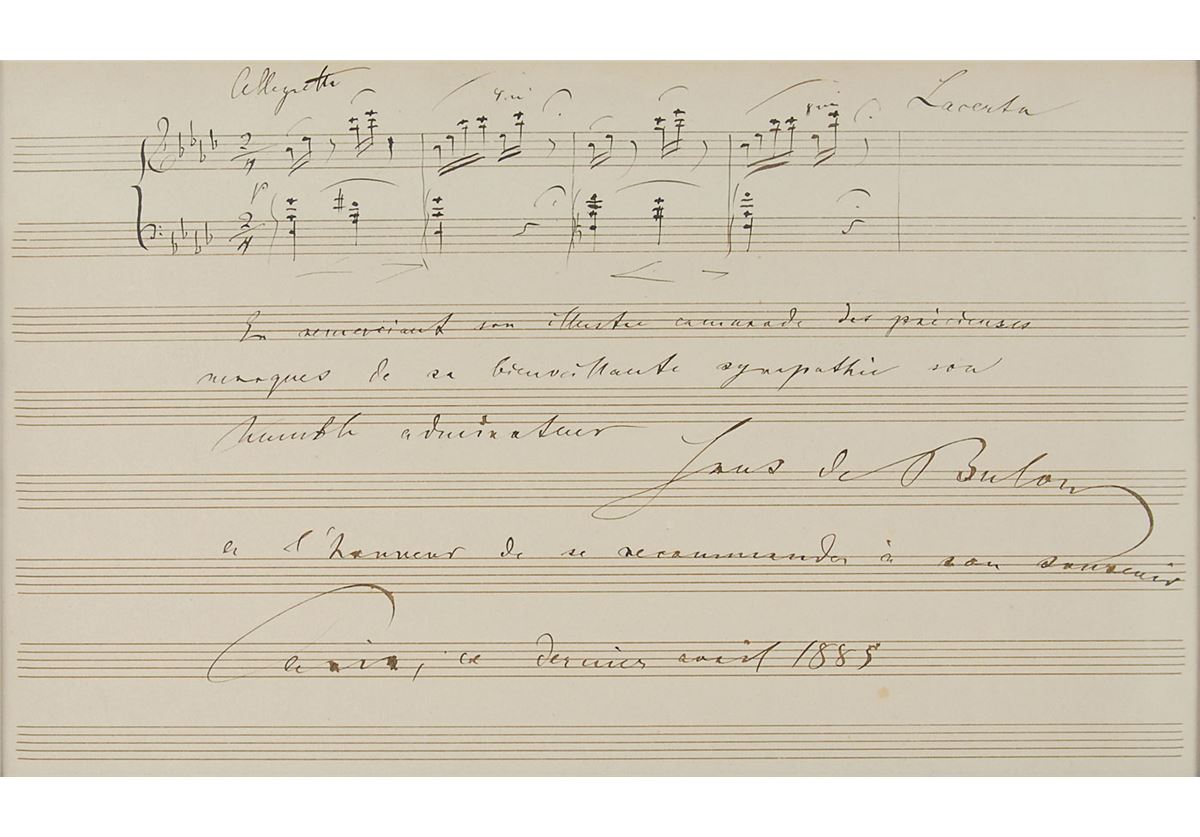 Allegretto
Lacerta
8va
8va
2/4
p
2/4
En remerciant son illustre camarade des précieuses
marques de sa bienveillante sympathie son
humble admirateur
Hans de Bulow
a l'honneur de se recommander à son souvenir
Paris, ce dernier avril 1885